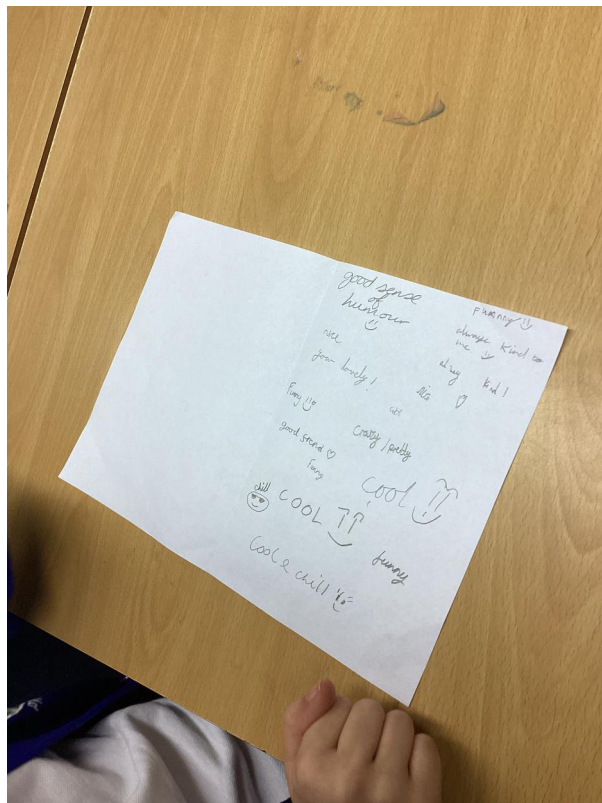 good sense
of
humour
Funny
always kind to
me
nice
your lovely!
kind!
nice
Funny
crazy / pretty
good friend
Funny
cool
chill
COOL
funny
Cool & chill